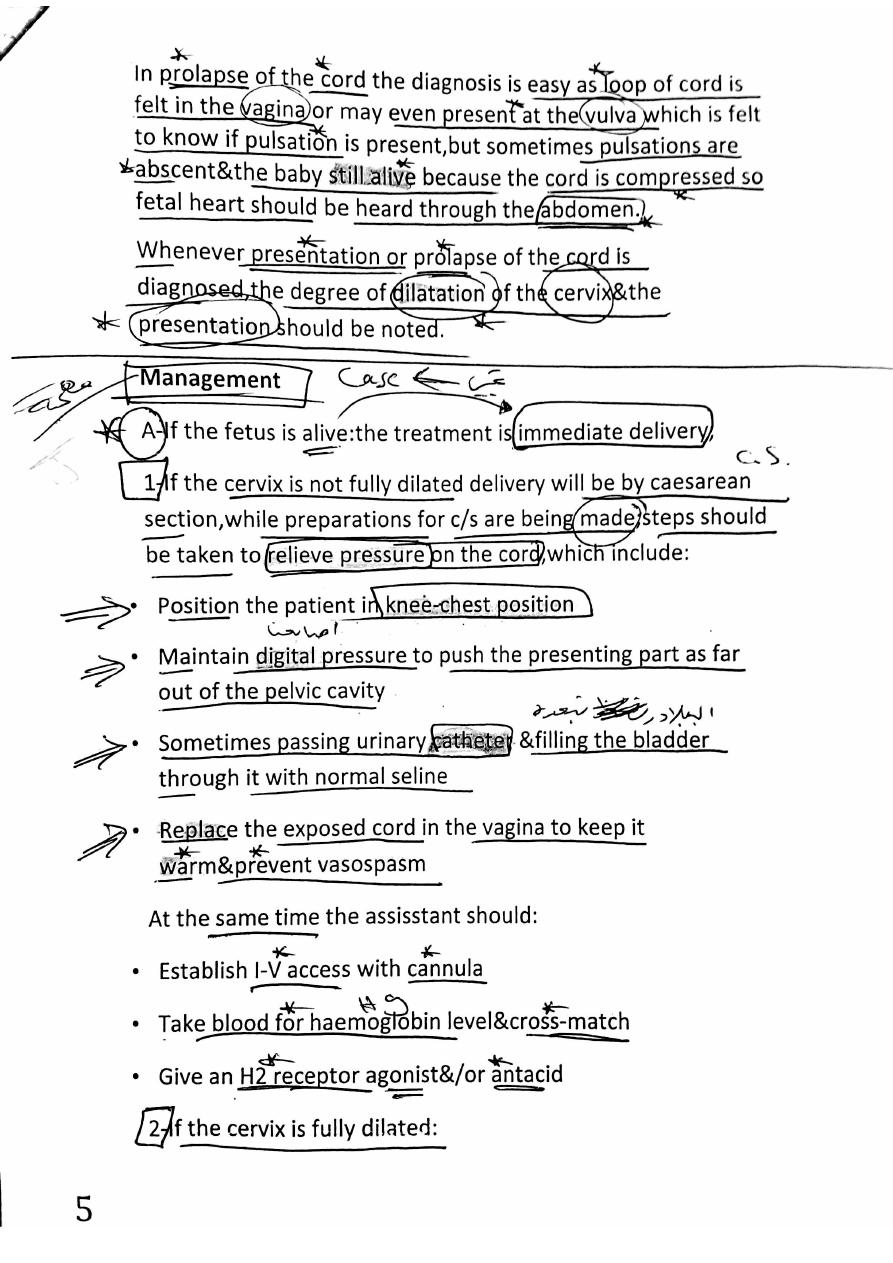 In prolapse of the cord the diagnosis is easy as loop of cord is
felt in the vagina or may even present at the vulva which is felt
to know if pulsation is present,but sometimes pulsations are
abscent&the baby still alive because the cord is compressed so
fetal heart should be heard through the abdomen.
Whenever presentation or prolapse of the cord is
diagnosed,the degree of dilatation of the cervix&the
presentation should be noted.
Management Case
A-If the fetus is alive:the treatment is immediate delivery,
C.S.
1-If the cervix is not fully dilated delivery will be by caesarean
section,while preparations for c/s are being made,steps should
be taken to relieve pressure on the cord,which include:
• Position the patient in knee-chest position
• Maintain digital pressure to push the presenting part as far
out of the pelvic cavity
• Sometimes passing urinary catheter &filling the bladder
through it with normal seline
• Replace the exposed cord in the vagina to keep it
warm&prevent vasospasm
At the same time the assisstant should:
• Establish I-V access with cannula
Hg
• Take blood for haemoglobin level&cross-match
• Give an H2 receptor agonist&/or antacid
2-If the cervix is fully dilated:
5